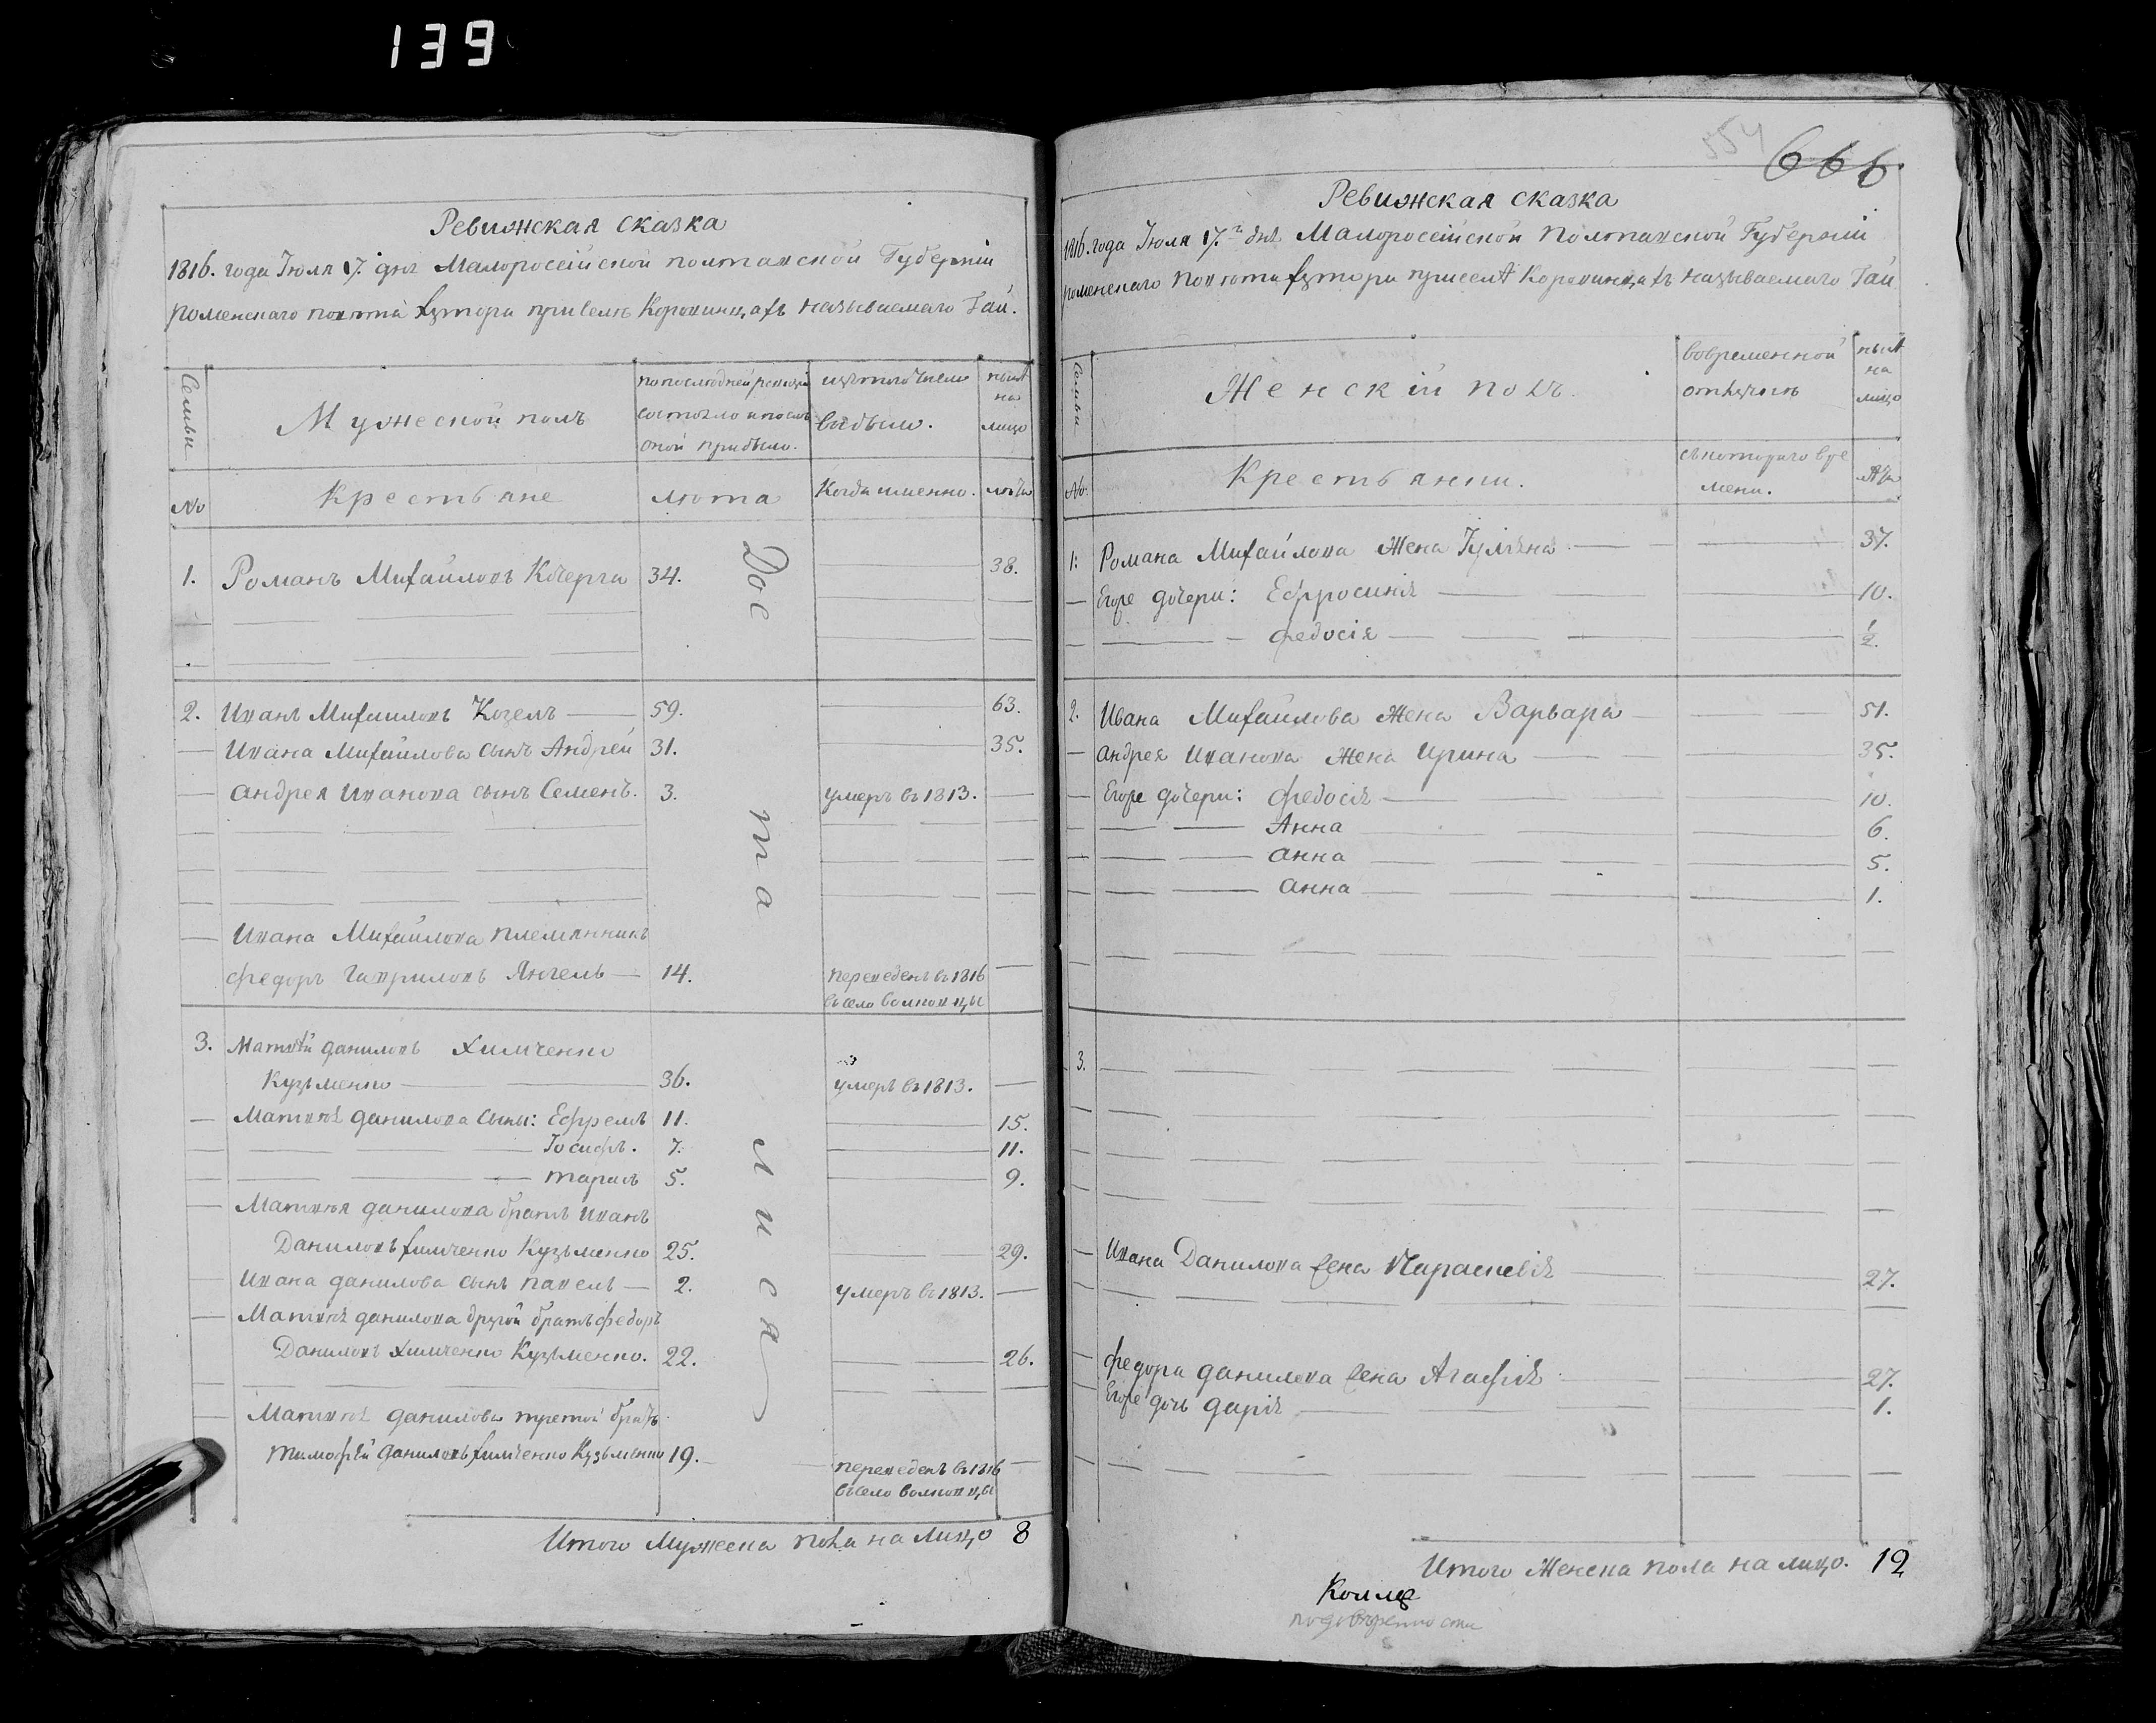 139
Ревижская сказка
1816. года Іюля 17. дня Малороссійской полтавской Губерніи
роменскаго повѣта хутора приселѣ Коровинцахъ называемаго Гай.
Семьи
Мужеской полъ
попослѣдней ревизіи
состояло и послѣ
оной прибыло.
изътого числа
выбыло.
нынѣ
на
лицо
№
Крестьяне
лѣта
Когда именно.
лѣта
1. Романъ Михайловъ Кочерга 34. 38.
2. Иванъ Михайловъ Козелъ 59. 63.
Ивана Михайлова сынъ Андрей 31. 35.
Андрея Иванова сынъ Семенъ. 3. умеръ въ 1813.
Ивана Михайлова племянникъ
Федоръ Гавриловъ Янгель 14. переведенъ въ 1816
въ село волковцы
3. Матвѣй Даниловъ Химченко
Кузьменко 36. умеръ въ 1813.
Матвѣя данилова сыны: Ефремъ 11. 15.
Іосифъ. 7. 11.
Тарасъ 5. 9.
Матвѣя данилова братъ Иванъ
Даниловъ химченко Кузьменко 25. 29.
Ивана данилова сынъ павелъ 2. умеръ въ 1813.
Матвѣя данилова другой братъ федоръ
Даниловъ химченко Кузьменко. 22. 26.
Матвѣя данилова третой братъ
тимофѣй даниловъ химченко Кузьменко 19. переведенъ въ 1816
въ село волковцы
Досталися
Итого Мужеска пола на Лицо 8
554
666
Ревижская сказка
1816. года Іюля 17.го дня Малороссійской полтавской Губерніи
роменскаго повѣта хутора приселѣ Коровинцахъ называемаго Гай
Семьи
Женскій полъ.
вовременной
отлучкѣ
нынѣ
на
лицо
№.
Крестьянки.
съкотораго вре
мени.
лѣта
1: Романа Михайлова Жена Іуліяна 37.
Егоже дочери: Ефросинія 10.
Федосія ½.
2. Ивана Михайлова Жена Варвара 51.
Андрея Иванова Жена Ирина 35.
Егоже дочери: Федосія 10.
Анна 6.
Анна 5.
Анна 1.
3.
Ивана Данилова жена Параскевія 27.
Федора данилова жена Агафія 27.
Егоже дочь дарія 1.
Итого Женска пола на лицо. 12